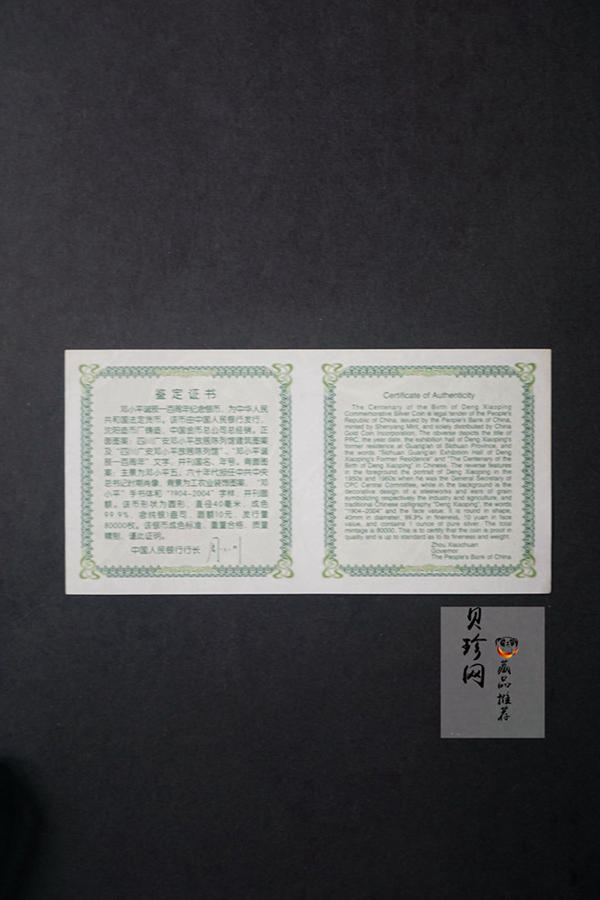 鉴定证书
邓小平诞辰一百周年纪念银币，为中华人民
共和国法定货币。该币由中国人民银行发行，
沈阳造币厂铸造，中国金币总公司总经销。正
面图案：四川广安邓小平故居陈列馆建筑图案
及“四川广安邓小平故居陈列馆”、“邓小平诞
辰一百周年”文字，并刊国名、年号。背面图
案：主景为邓小平五、六十年代担任中共中央
总书记时期肖像，背景为工农业装饰图案，“邓
小平”手书体和“1904-2004”字样，并刊面
额。该币形状为圆形，直径40毫米，成色
99.9%，含纯银1盎司，面额10元，发行量
80000枚。该银币成色标准，重量合格，质量
精制，谨此证明。
中国人民银行行长
Certificate of Authenticity
The Centenary of the Birth of Deng Xiaoping
Commemorative Silver Coin is legal tender of the People's
Republic of China, issued by the People's Bank of China,
minted by Shenyang Mint, and solely distributed by China
Gold Coin Incorporation. The obverse depicts the title of
PRC, the year date, the exhibition hall of Deng Xiaoping's
former residence at Guang'an of Sichuan Province, and
the words "Sichuan Guang'an Exhibition Hall of Deng
Xiaoping's Former Residence" and "The Centenary of the
Birth of Deng Xiaoping" in Chinese. The reverse features
in the foreground the portrait of Deng Xiaoping in the
1950s and 1960s when he was the General Secretary of
CPC Central Committee, while in the background is the
decorative design of a steelworks and ears of grain
symbolizing respectively the industry and agriculture, and
traditional Chinese calligraphy "Deng Xiaoping", the words
"1904-2004" and the face value. It is round in shape,
40mm in diameter, 99.9% in fineness, 10 yuan in face
value, and contains 1 ounce of pure silver. The total
mintage is 80000. This is to certify that the coin is proof in
quality and is up to standard as to its fineness and weight.
Zhou Xiaochuan
Governor
The People's Bank of China
贝珍网
藏品推荐